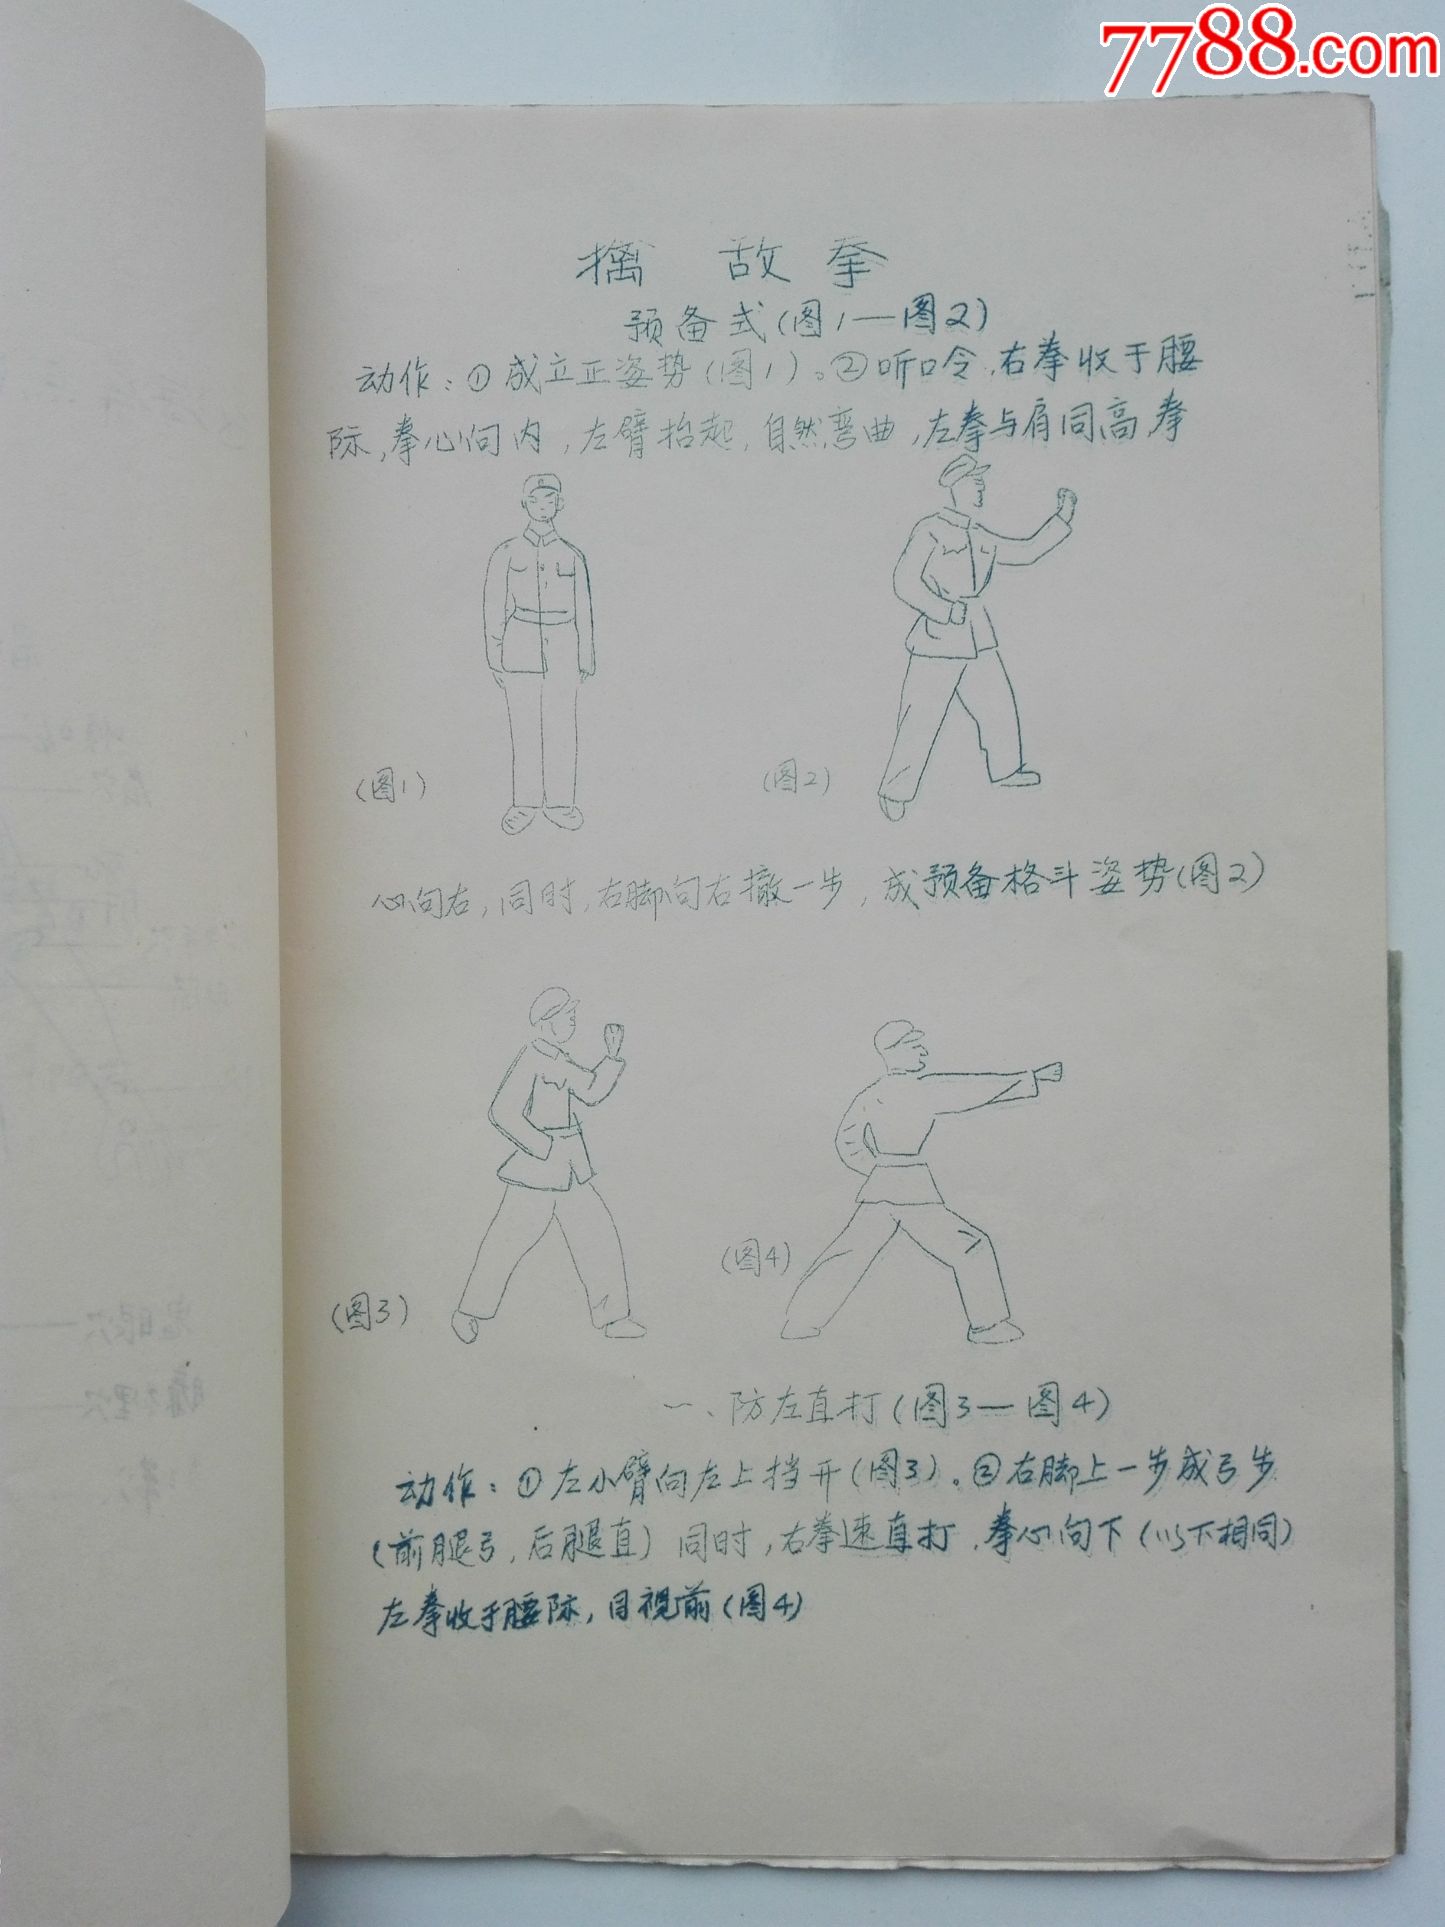 7788.com
擒敌拳
预备式(图1—图2)
动作:①成立正姿势(图1)。②听口令,右拳收于腰
际,拳心向内,左臂抬起,自然弯曲,左拳与肩同高,拳
(图1)
(图2)
心向右,同时,右脚向右撤一步,成预备格斗姿势(图2)
(图3)
(图4)
一、防左直打(图3—图4)
动作:①左小臂向左上挡开(图3)。②右脚上一步成弓步
(前腿弓,后腿直)同时,右拳速直打,拳心向下(以下相同)
左拳收于腰际,目視前(图4)